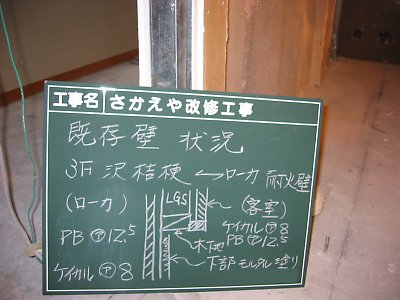 工事名 さかえや改修工事
既存壁 状況
3F 沢桔梗 ←ローカ 耐火壁
(ローカ) LGS (客室)
ケイカル ㋐8
PB ㋐12.5 PB ㋐12.5
木下地
ケイカル ㋐8 下部モルタル塗り